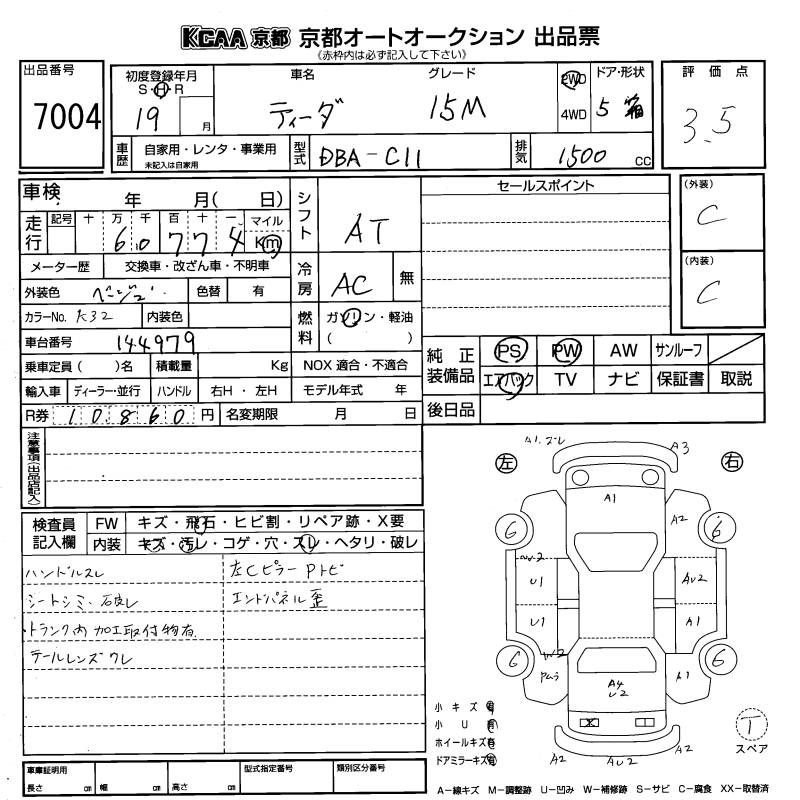 KCAA 京都 京都オートオークション 出品票
(赤枠内は必ず記入して下さい)
出品番号
7004
初度登録年月
S・H・R
19 月
車名
ティーダ
グレード
15M
2WD
4WD
ドア・形状
5 箱
評価点
3.5
車歴
自家用・レンタ・事業用
未記入は自家用
型式
DBA-C11
排気
1500 CC
車検 年 月( 日)
走行
記号 十 万 千 百 十 一 マイル
6 0 7 7 4 Km
メーター歴 交換車・改ざん車・不明車
外装色 ベージュ 色替 有
カラーNo. K32 内装色
車台番号 144979
乗車定員( )名 積載量 Kg
輸入車 ディーラー・並行 ハンドル 右H・左H
R券 10860 円 名変期限 月 日
シフト
AT
冷房
AC 無
燃料
ガソリン・軽油
( )
NOX 適合・不適合
モデル年式 年
セールスポイント
(外装)
C
(内装)
C
純正装備品
PS PW AW サンルーフ
エアバック TV ナビ 保証書 取説
後日品
注意事項(出品店記入)
検査員記入欄
FW キズ・飛石・ヒビ割・リペア跡・X要
内装 キズ・汚レ・コゲ・穴・スレ・ヘタリ・破レ
ハンドルスレ
シートシミ・破レ
トランク内加工取付物有
テールレンズワレ
左Cピラー Pトビ
エンドパネル歪
左
右
A1.ズレ
A3
A1
A2
G
6
W2
U1
AU2
U1
A1
G
6
W2
Pムラ
A4
U2
A1
X
A2
AU2
A2
小キズ有
小U有
ホイールキズ有
ドアミラーキズ有
T
スペア
車庫証明用
長さ cm 幅 cm 高さ cm
型式指定番号
類別区分番号
A－線キズ M－調整跡 U－凹み W－補修跡 S－サビ C－腐食 XX－取替済